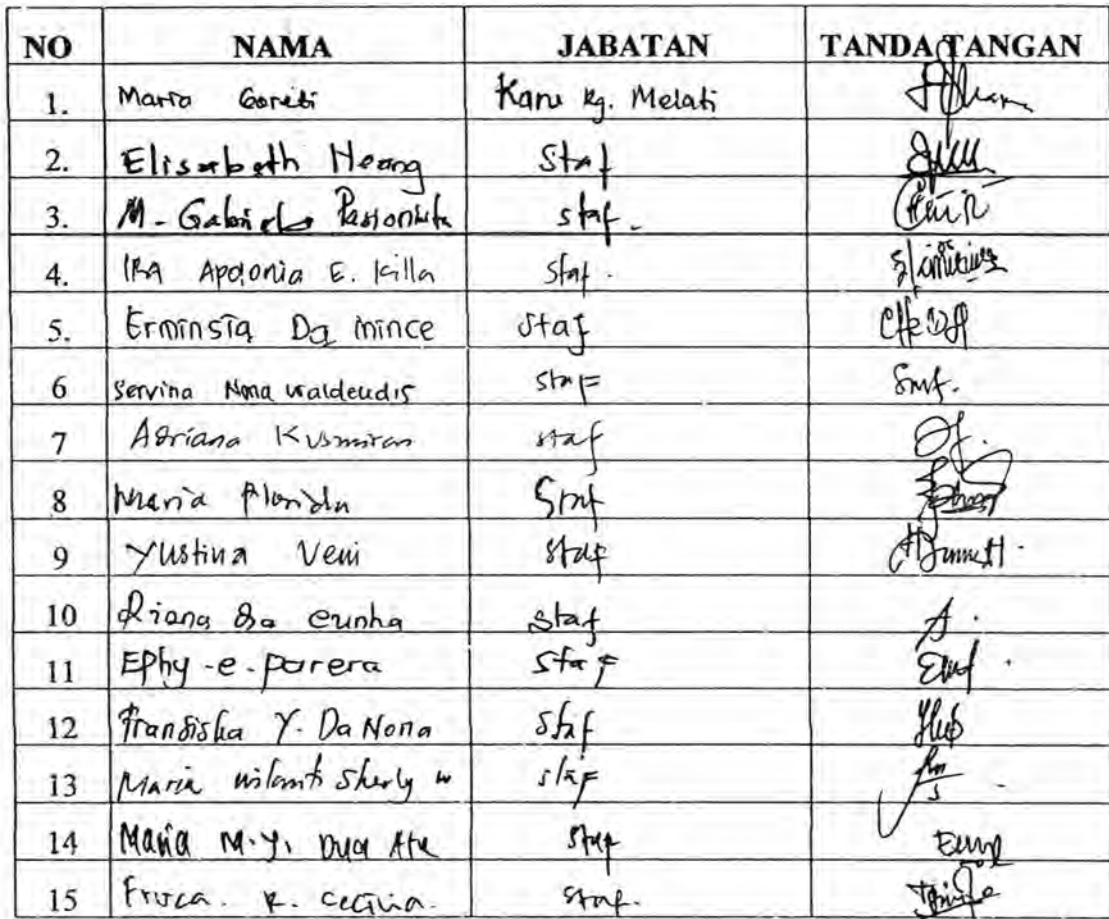 NO NAMA JABATAN TANDA TANGAN
1. Maria Goreti Karu Rg. Melati
2. Elisabeth Heang Staf
3. M. Gabriela Pasionista staf.
4. IRA Apolonia E. Killa staf.
5. Erminsia Da mince staf
6 Servina Nona waldeudis staf
7 Adriana Kusmiran staf
8 Maria Florida Staf
9 Yustina Veni staf
10 Riana Da cunha staf
11 Ephy - e - parera staf
12 Fransiska Y. Da Nona staf
13 Maria wilanti Sherly w staf
14 Maria M.Y. Dua staf
15 R. staf.